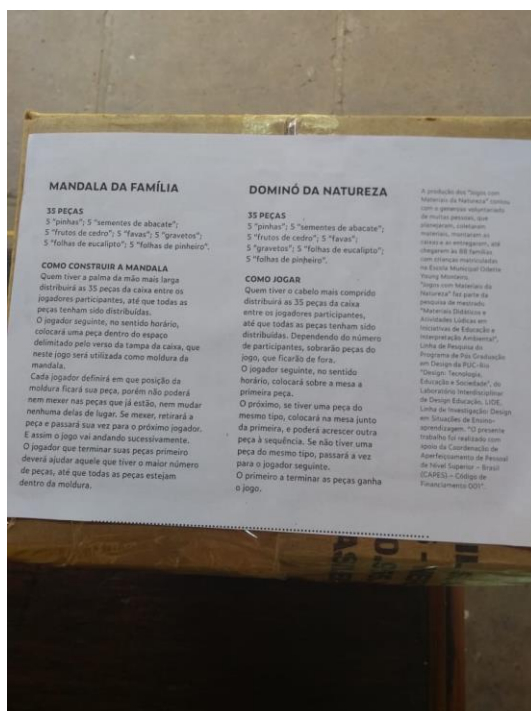 MANDALA DA FAMÍLIA
35 PEÇAS
5 "pinhas"; 5 "sementes de abacate";
5 "frutos de cedro"; 5 "favas"; 5 "gravetos";
5 "folhas de eucalipto"; 5 "folhas de pinheiro".
COMO CONSTRUIR A MANDALA
Quem tiver a palma da mão mais larga
distribuirá as 35 peças da caixa entre os
jogadores participantes, até que todas as
peças tenham sido distribuídas.
O jogador seguinte, no sentido horário,
colocará uma peça dentro do espaço
delimitado pelo verso da tampa da caixa, que
neste jogo será utilizada como moldura da
mandala.
Cada jogador definirá em que posição da
moldura ficará sua peça, porém não poderá
nem mexer nas peças que já estão, nem mudar
nenhuma delas de lugar. Se mexer, retirará a
peça e passará sua vez para o próximo jogador.
E assim o jogo vai andando sucessivamente.
O jogador que terminar suas peças primeiro
deverá ajudar aquele que tiver o maior número
de peças, até que todas as peças estejam
dentro da moldura.
DOMINÓ DA NATUREZA
35 PEÇAS
5 "pinhas"; 5 "sementes de abacate";
5 "frutos de cedro"; 5 "favas";
5 "gravetos"; 5 "folhas de eucalipto";
5 "folhas de pinheiro".
COMO JOGAR
Quem tiver o cabelo mais comprido
distribuirá as 35 peças da caixa
entre os jogadores participantes,
até que todas as peças tenham sido
distribuídas. Dependendo do número
de participantes, sobrarão peças do
jogo, que ficarão de fora.
O jogador seguinte, no sentido
horário, colocará sobre a mesa a
primeira peça.
O próximo, se tiver uma peça do
mesmo tipo, colocará na mesa junto
da primeira, e poderá acrescer outra
peça à sequência. Se não tiver uma
peça do mesmo tipo, passará a vez
para o jogador seguinte.
O primeiro a terminar as peças ganha
o jogo.
A produção dos "Jogos com
Materiais da Natureza" contou
com o generoso voluntariado
de muitas pessoas, que
planejaram, coletaram
materiais, montaram as
caixas e as entregaram, até
chegarem às 88 famílias
com crianças matriculadas
na Escola Municipal Odette
Young Monteiro.
"Jogos com Materiais da
Natureza" faz parte da
pesquisa de mestrado
"Materiais Didáticos e
Atividades Lúdicas em
Iniciativas de Educação e
Interpretação Ambiental",
Linha de Pesquisa do
Programa de Pós Graduação
em Design da PUC-Rio
"Design: Tecnologia,
Educação e Sociedade", do
Laboratório Interdisciplinar
de Design Educação, LIDE,
Linha de Investigação: Design
em Situações de Ensino-
aprendizagem. "O presente
trabalho foi realizado com
apoio da Coordenação de
Aperfeiçoamento de Pessoal
de Nível Superior – Brasil
(CAPES) – Código de
Financiamento 001".